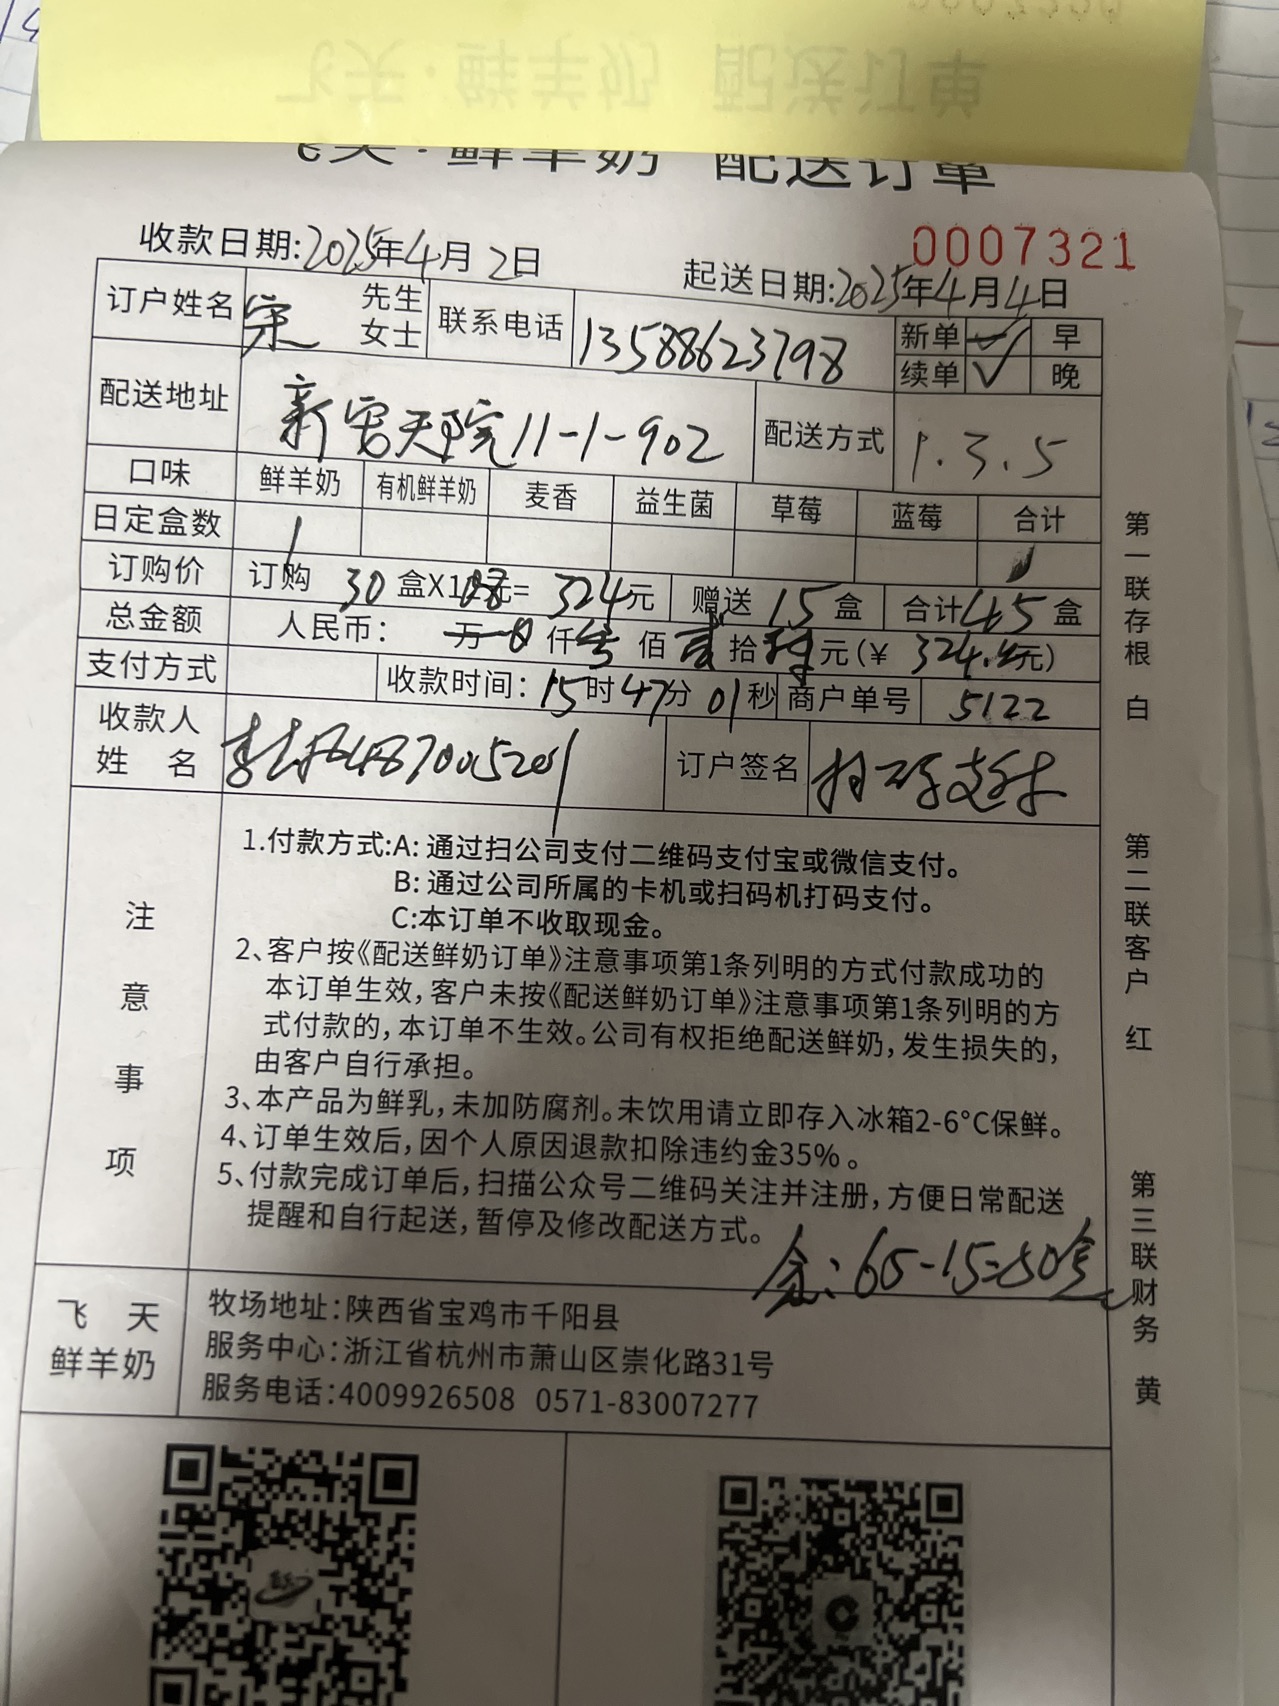 飞天·鲜羊奶 配送订单
0007321
收款日期:2025年4月2日
起送日期:2025年4月4日
订户姓名 宋 先生 女士 联系电话 13588623798 新单 早
续单 ✓ 晚
配送地址 新窑天院11-1-902 配送方式 1.3.5
口味 鲜羊奶 有机鲜羊奶 麦香 益生菌 草莓 蓝莓 合计
日定盒数 1 1
订购价 订购 30 盒X10.8元= 324元 赠送 15盒 合计45盒
总金额 人民币: 万 仟 佰 贰拾 元(¥ 324.元)
支付方式 收款时间:15时47分01秒 商户单号 5122
收款人 姓 名 订户签名 扫码支付
注意事项
1.付款方式:A:通过扫公司支付二维码支付宝或微信支付。
B:通过公司所属的卡机或扫码机打码支付。
C:本订单不收取现金。
2、客户按《配送鲜奶订单》注意事项第1条列明的方式付款成功的
本订单生效,客户未按《配送鲜奶订单》注意事项第1条列明的方
式付款的,本订单不生效。公司有权拒绝配送鲜奶,发生损失的,
由客户自行承担。
3、本产品为鲜乳,未加防腐剂。未饮用请立即存入冰箱2-6°C保鲜。
4、订单生效后,因个人原因退款扣除违约金35%。
5、付款完成订单后,扫描公众号二维码关注并注册,方便日常配送
提醒和自行起送,暂停及修改配送方式。
余:65-15=50盒
飞天 鲜羊奶
牧场地址:陕西省宝鸡市千阳县
服务中心:浙江省杭州市萧山区崇化路31号
服务电话:4009926508 0571-83007277
第一联存根 白
第二联客户 红
第三联财务 黄